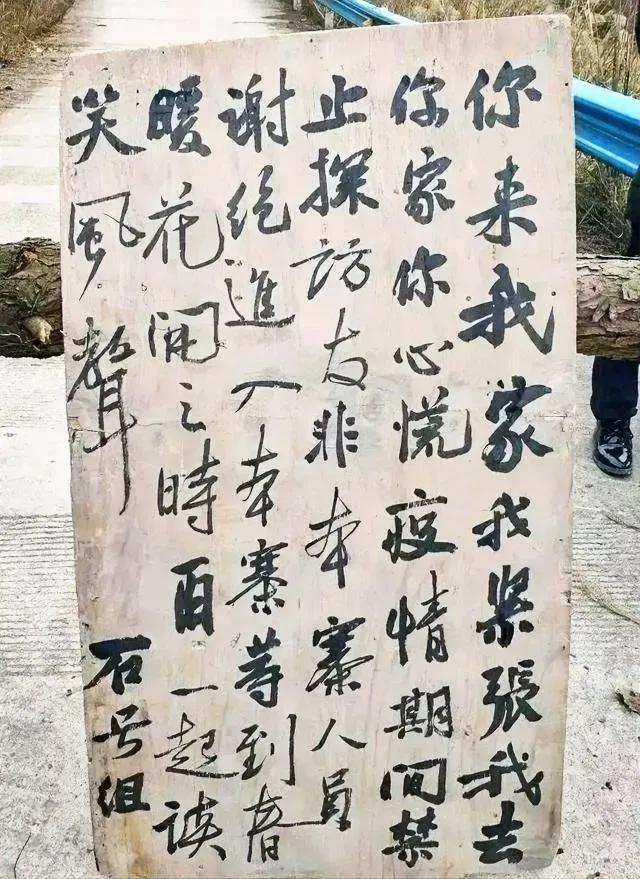 你来我家我紧張我去
你家你心慌疫情期间禁
止探訪友非本寨人员
谢绝進入本寨等到春
暖花開之時再一起谈
笑風聲 石号组